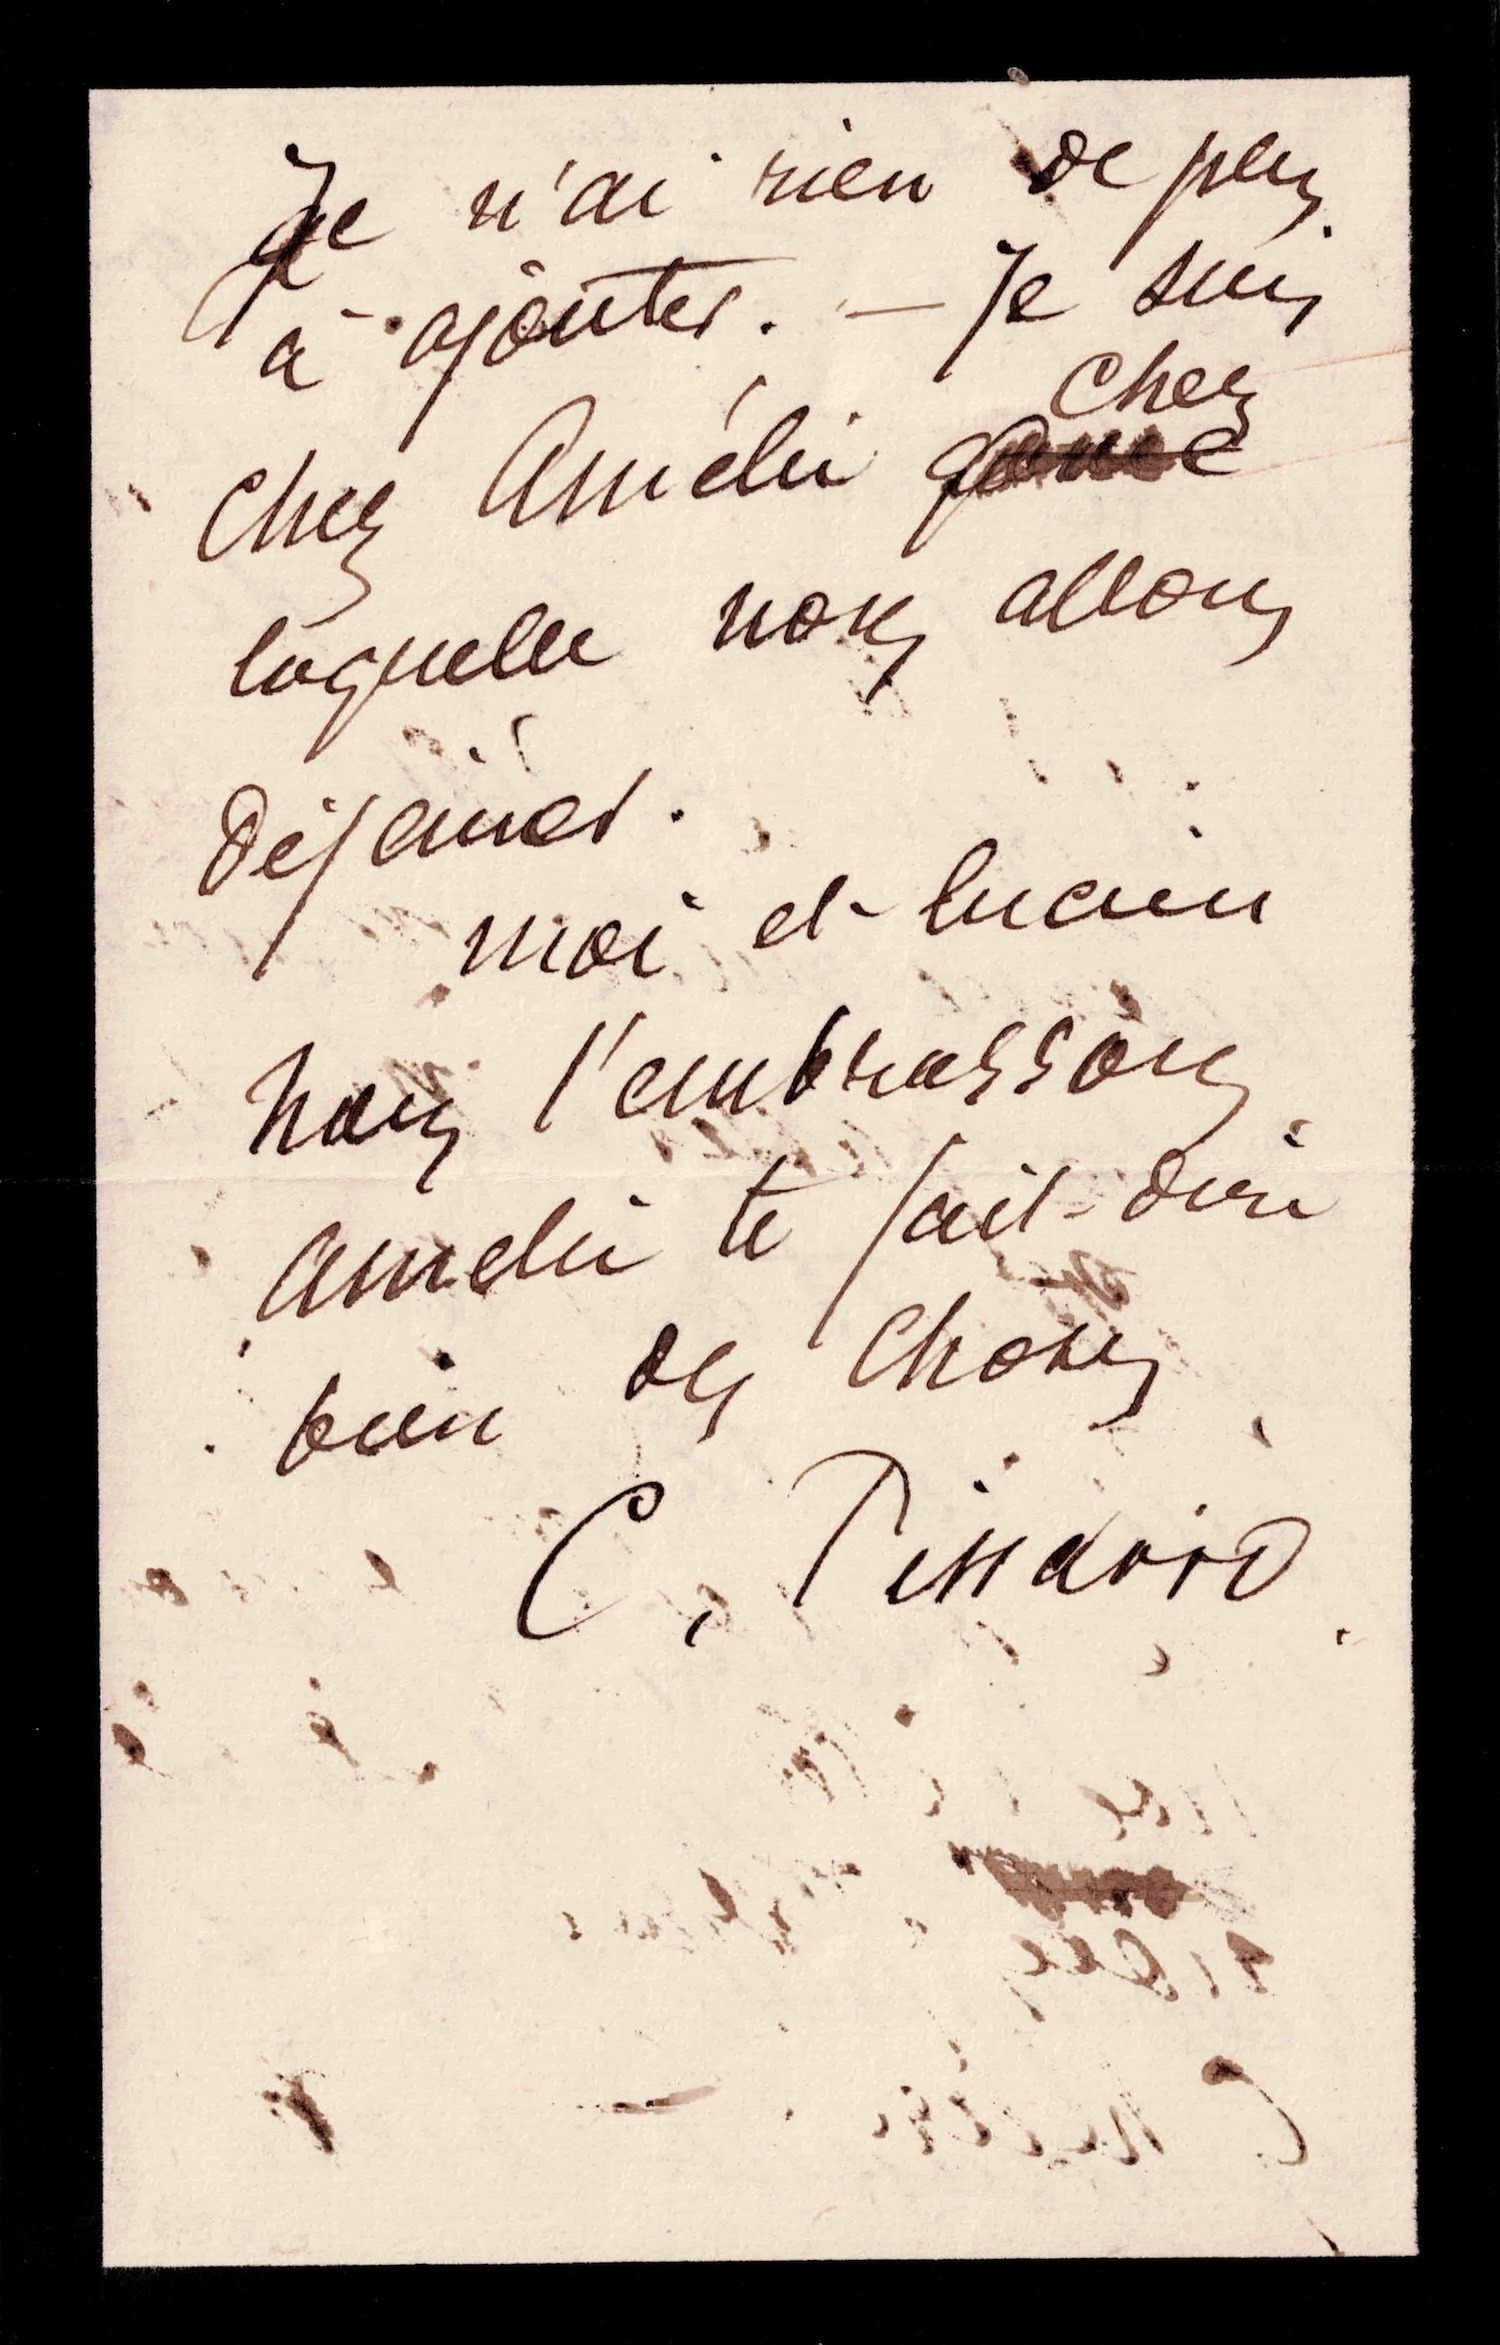 Je n'ai rien de plus
à ajouter. — Je suis
chez
chez Amélie
laquelle nous allons
déjeuner.
moi et Lucien
nous t'embrassons
Amelie te fait dire
bien des choses
C. Pissarro